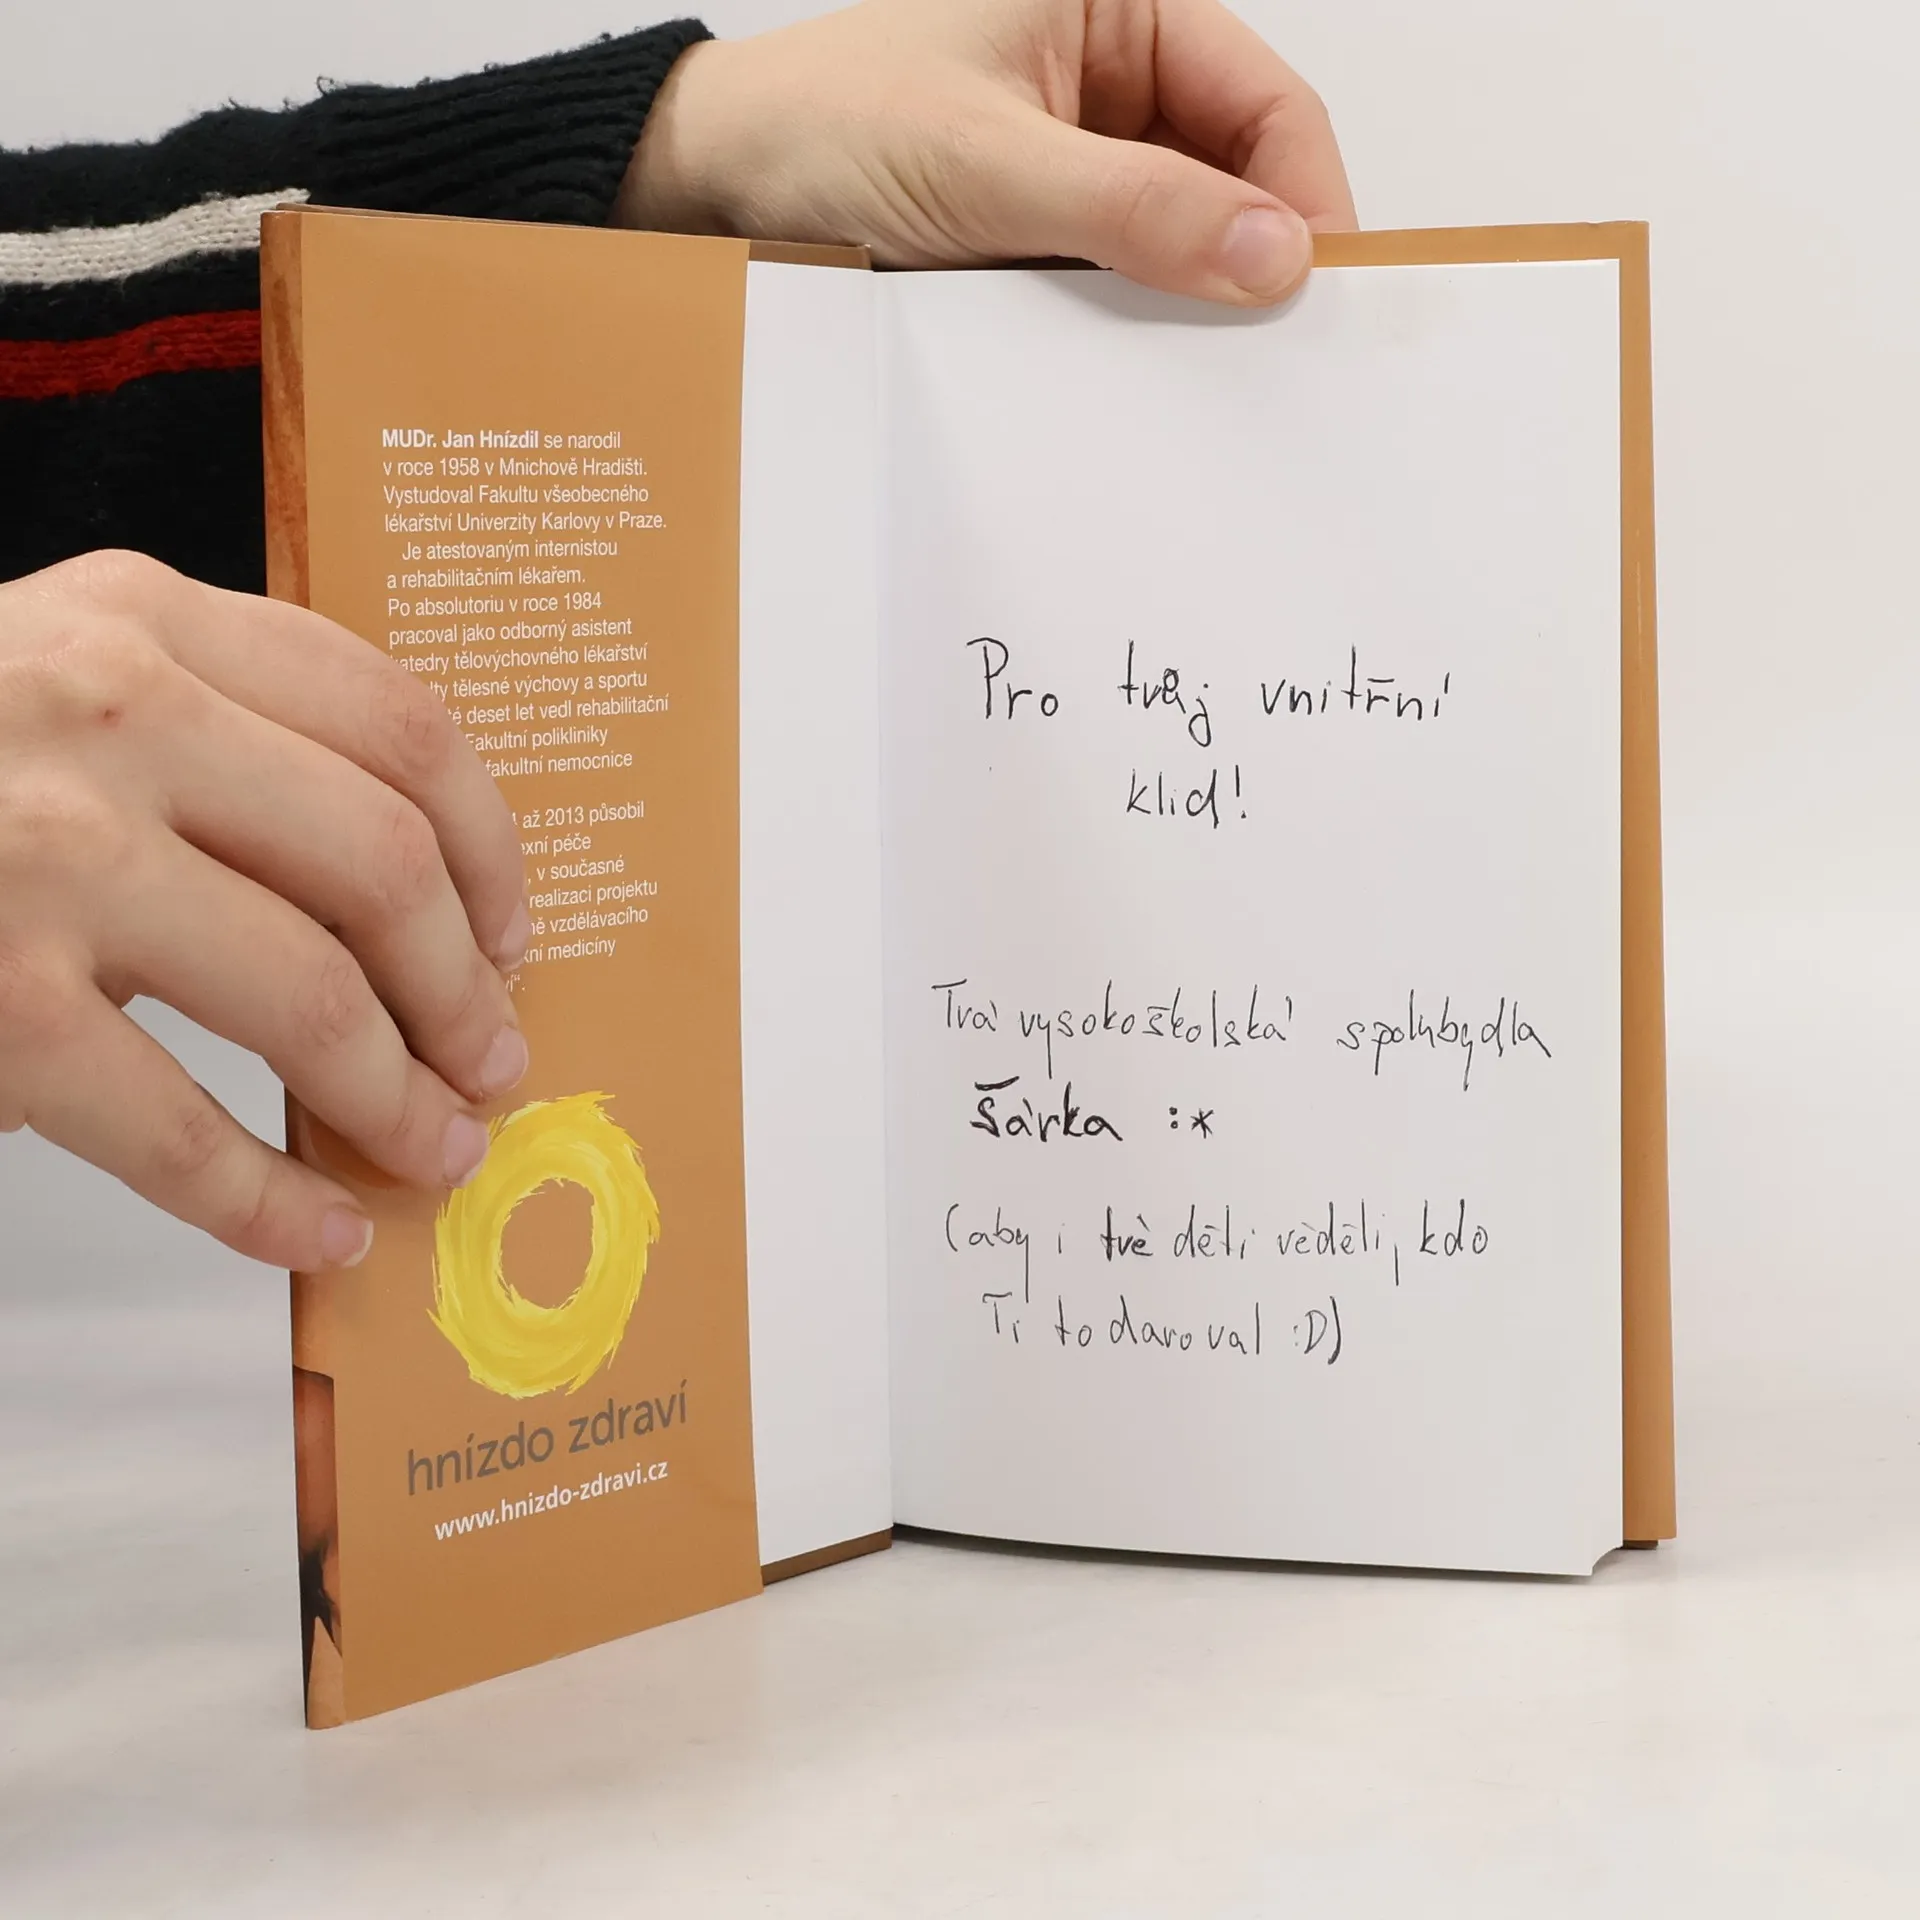 MUDr. Jan Hnízdil se narodil
v roce 1958 v Mnichově Hradišti.
Vystudoval Fakultu všeobecného
lékařství Univerzity Karlovy v Praze.
Je atestovaným internistou
a rehabilitačním lékařem.
Po absolutoriu v roce 1984
pracoval jako odborný asistent
katedry tělovýchovného lékařství
lty tělesné výchovy a sportu
té deset let vedl rehabilitační
Fakultní polikliniky
fakultní nemocnice
až 2013 působil
exní péče
, v současné
realizaci projektu
ně vzdělávacího
xní medicíny
ví“.
hnízdo zdraví
www.hnizdo-zdravi.cz
Pro tvůj vnitřní
klid!
Tvá vysokoškolská spolubydla
Šárka :*
(aby i tvé děti věděli, kdo
Ti to daroval :D)